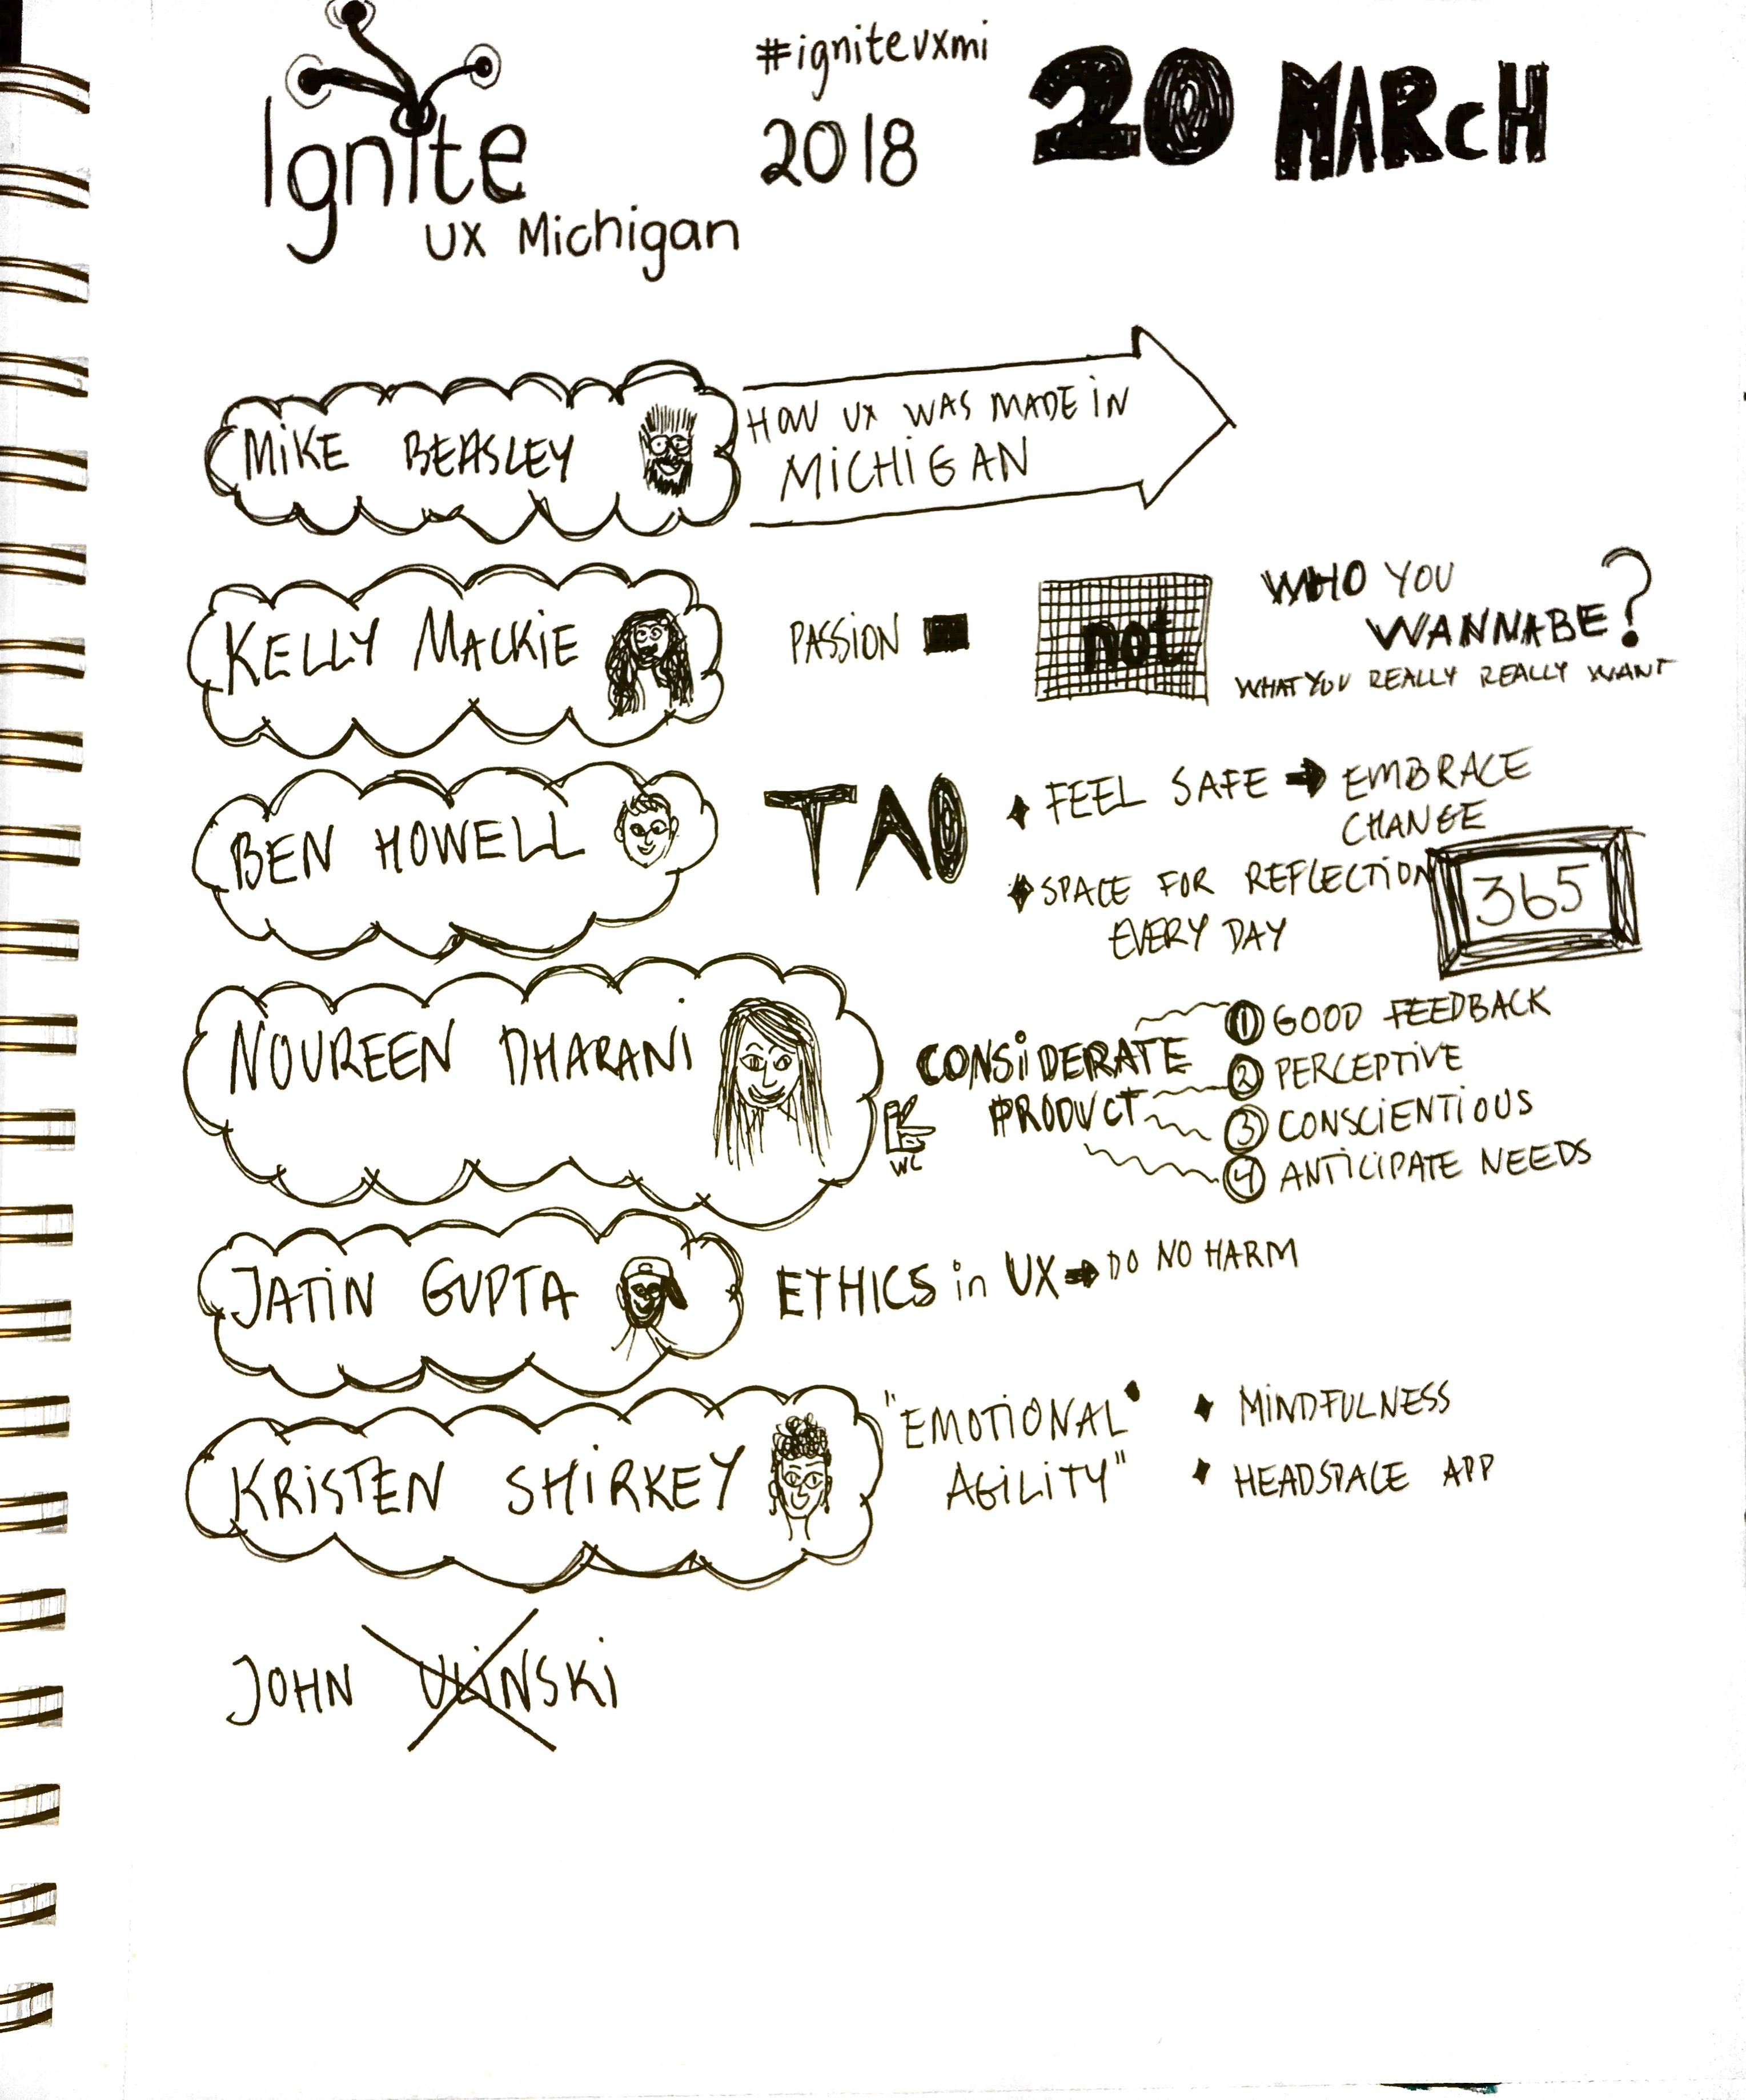 #igniteuxmi
20 MARCH
2018
Ignite
UX Michigan
MIKE BEASLEY
HOW UX WAS MADE IN
MICHIGAN
KELLY MACKIE
PASSION
not
WHO YOU
WANNABE?
WHAT YOU REALLY REALLY WANT
BEN HOWELL
TAO
FEEL SAFE → EMBRACE
CHANGE
SPACE FOR REFLECTION
EVERY DAY
365
NOUREEN DHARANI
WC
CONSIDERATE
PRODUCT
1 GOOD FEEDBACK
2 PERCEPTIVE
3 CONSCIENTIOUS
4 ANTICIPATE NEEDS
JATIN GUPTA
ETHICS in UX → DO NO HARM
KRISTEN SHIRKEY
"EMOTIONAL
AGILITY"
MINDFULNESS
HEADSPACE APP
JOHN ULINSKI